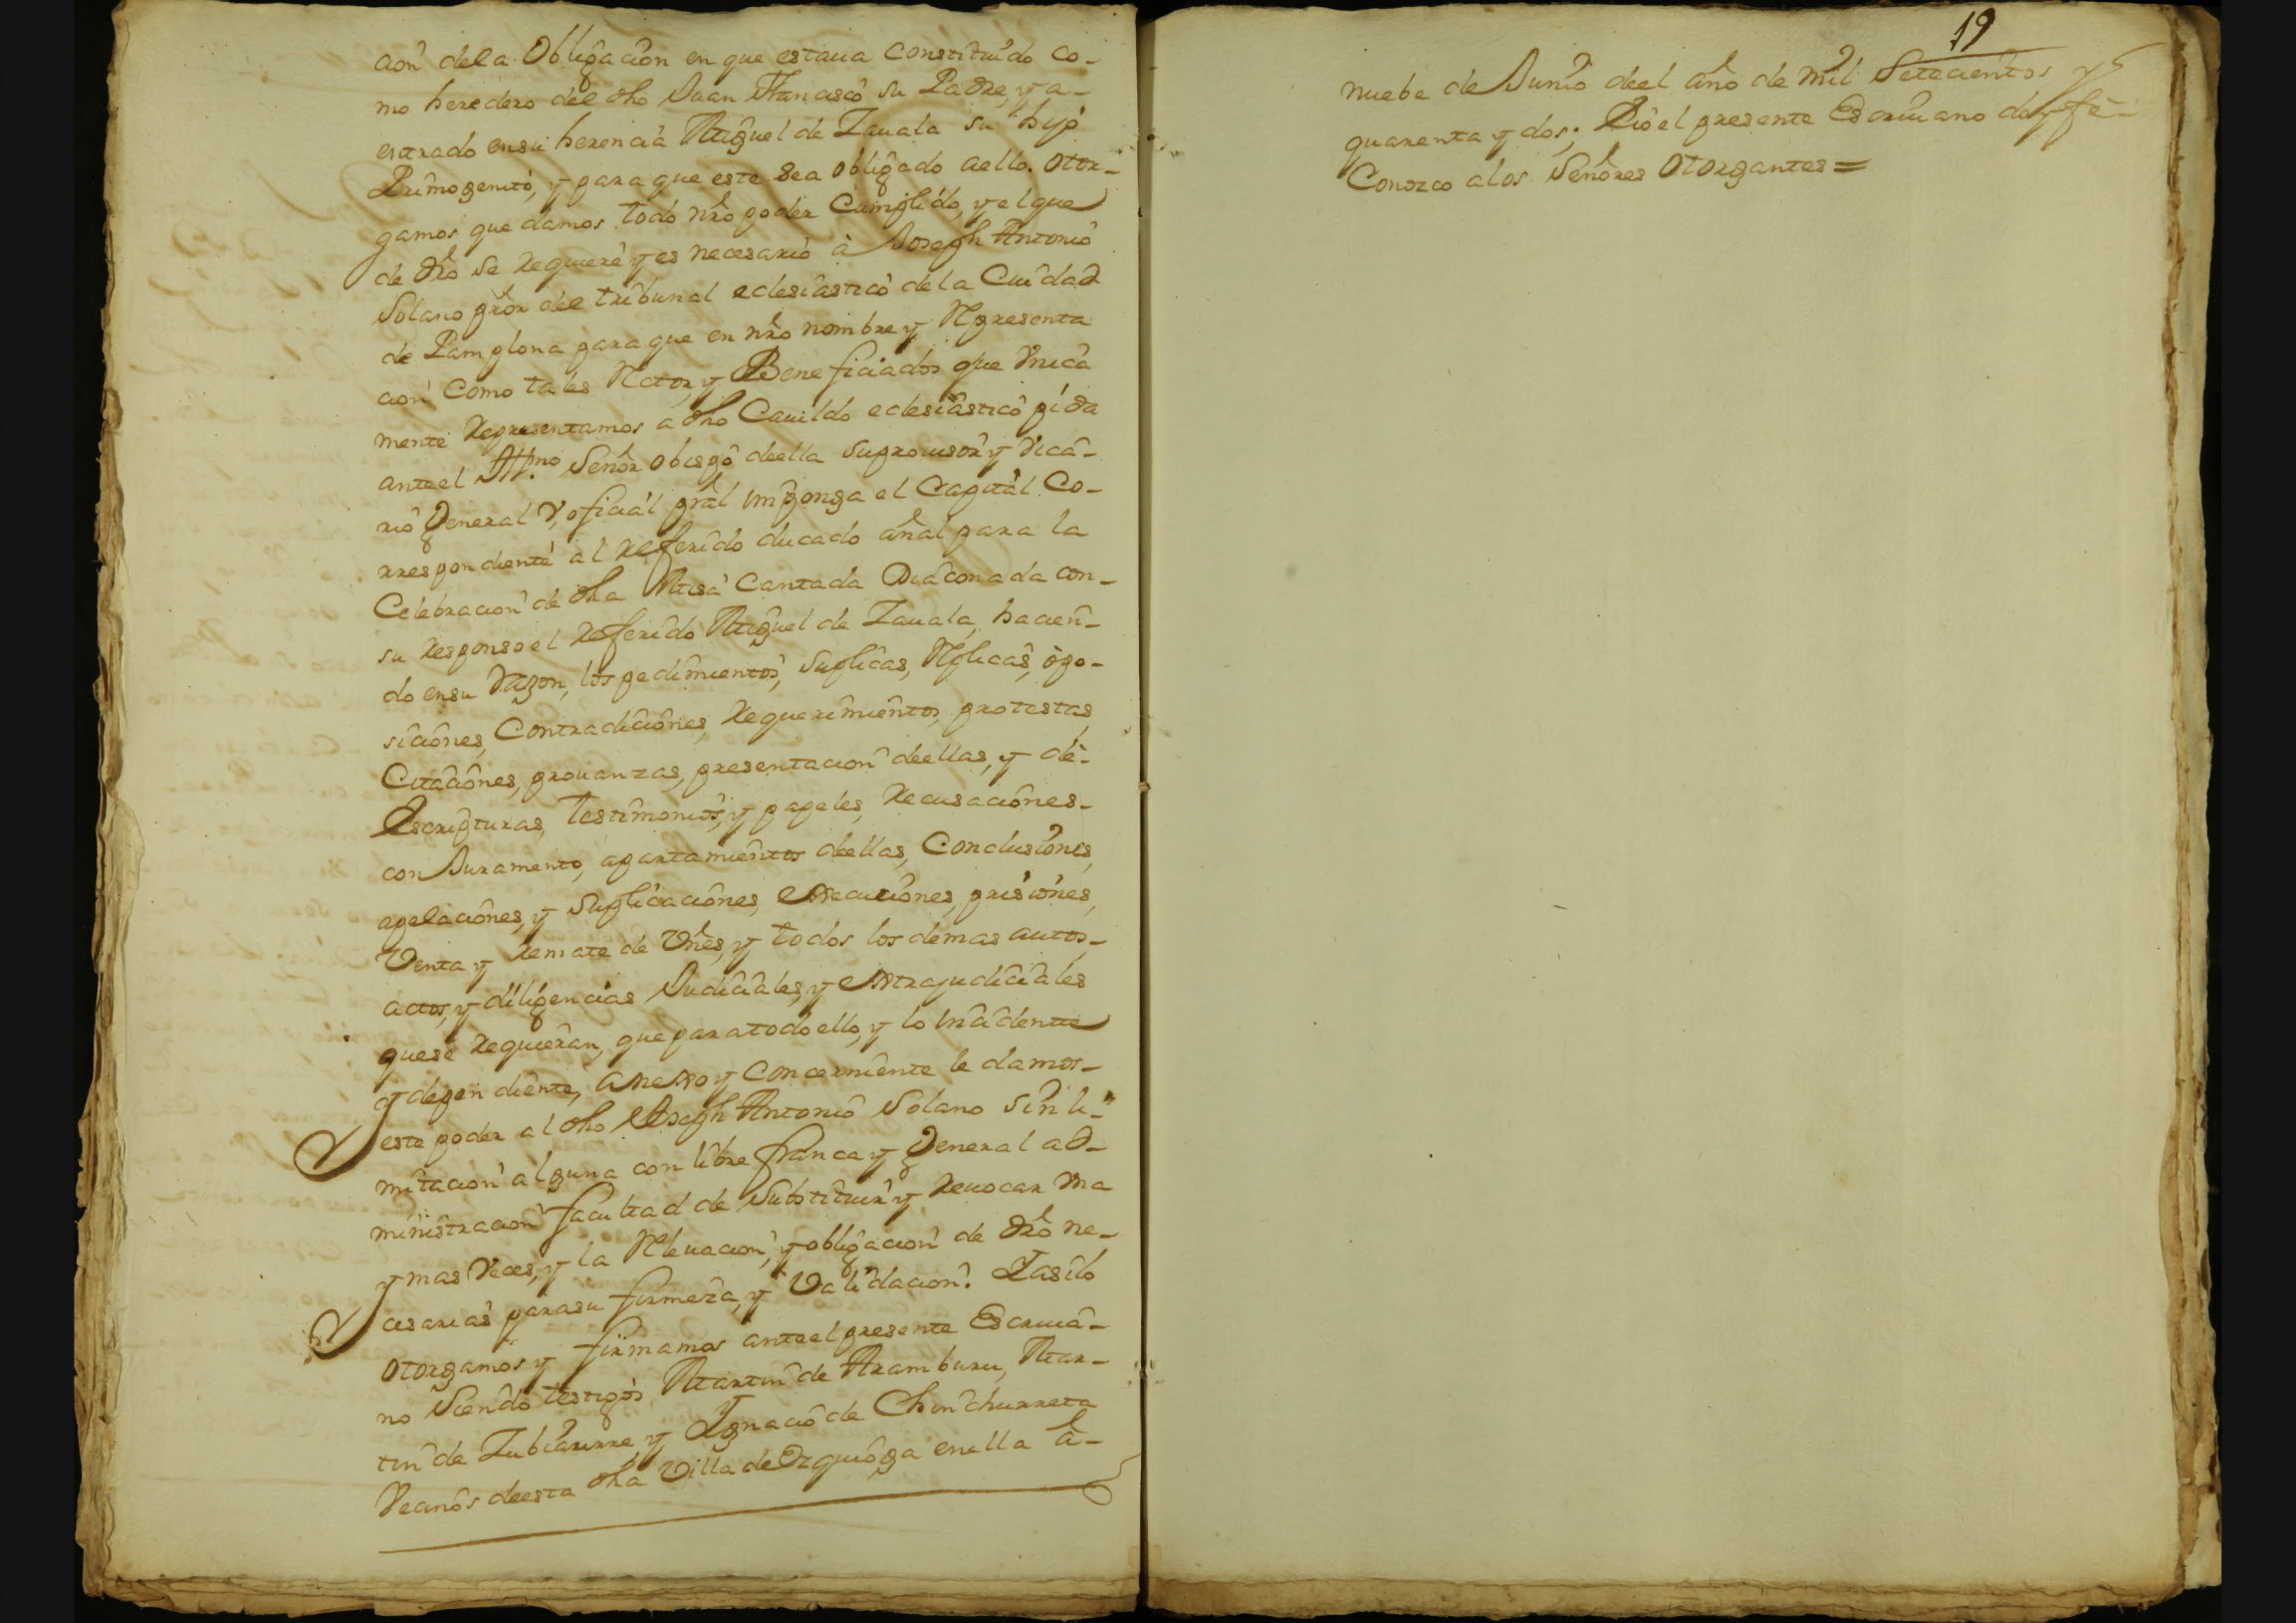 cion dela Obligacion en que estaua constituido co-
mo heredero del dho Juan Franasco su Padre, y a-
entrado ensu herencia Miguel de Zauala su hijo
Primogenito, y para que este sea obligado aello. Otor-
gamos que damos todo nro poder Cumplido, y el que
de dro se requiere y es necesario à Joseph Antonio
Solano pror del tribunal eclesiastico dela Ciudad
de Pamplona para que en nro nombre y Representa
cion como tales Rector, y Beneficiados que Vnica
mente Representamos a dho Cauildo eclesiastico pida
anteel Illmo Señor Obispo deella suprouisor y Vica-
rio General V, oficial gral imponga el Capital Co-
rrespondiente al referido ducado añal para la
Celebracion de dha Misa Cantada Diaconada con-
su responso el referido Miguel de Zauala, hacien-
do ensu Razon, los pedimientos, suplicas, Replicas, opo-
siciones, Contradiciones, Requerimientos, protestas,
Citaciones, prouanzas, presentacion deellas, y de-
Escripturas, testimonios, y papeles, Recusaciones-
con Juramento, apartamientos deellas, Conclusiones,
apelaciones, y suplicaciones, execuciones, prisiones,
Venta y Remate de Vnes, y todos los demas autos-
actos, y diligencias Judiciales, y extrajudiciales
quese requieran, que paratodo ello, y lo incidente
y dependiente, anexo y concerniente le damos-
este poder al dho Joseph Antonio Solano sin li-
mitacion alguna con libre franca y General ad-
ministracion facultad de Substituir y Reuocar vna
y mas Veces, y la Releuacion, y obligacion de dro ne-
cesarias parasu firmeza, y Validacion. Iasilo
otorgamos y firmamos anteel presente Escriua-
no Siendo testigos Martin de Aramburu, Mar-
tin de Zubiaurre, y Ignacio de Chinchurreta
Vecinos deesta dha Villa de Ezquioga enella à-
19
nuebe de Junio deel año de mil Setecientos y
quarenta y dos; Eio el presente Escriuano doy fe-
Conozco alos Señores Otorgantes=